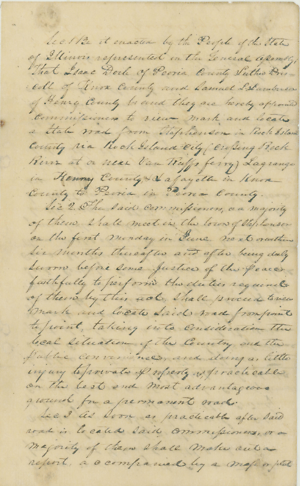 Sec 1 Be it enacted by the People of the State
of Illinois represented in the General Assembly
That Isaac Doil of Peoria County Luther
of Knox County and Samuel
of Henry County be and they are hereby appointed
Commissioners to view mark and locate
a State road from Stephenson in Rock Island
County via Rock Island City, Crossing Rock
River at or near Van Ruffs ferry, Lagrange
in Henry County & Lafayette in Knox
County to Peoria in Peoria County.
Sec 2 The said commissioners, or a majority
of them shall meet in the town of Stephenson
on the first Monday in June next or within
six months thereafter and after being duly
sworn before some Justice of the Peace
faithfully to perform the duties required
of them by this act shall proceed to view
mark and locate said road from point
to point, taking into consideration the
local situation of the Country and the
public convenience and doing as little
injury to private property as practicable
on the best and most advantageous
ground for a permanent road.
Sec 3 As soon as practicable after said
road is located said commissioners, or a
majority of them shall make out a
report, accompanied by a map or plat